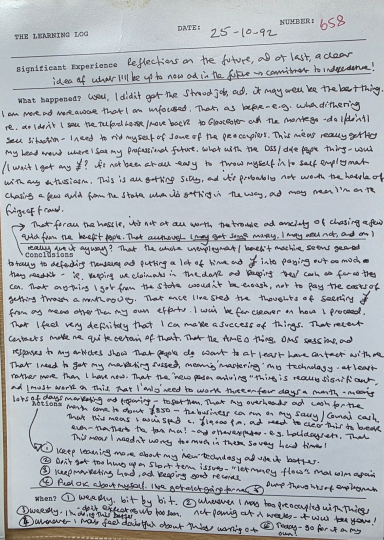 THE LEARNING LOG
DATE: 25-10-92
NUMBER: 658
Significant Experience Reflections on the future, ad at last, a clear
idea of what I'll be up to now ad in the future → commitment to Independence!
What happened? Well, I didn't got the Stroud job, ad. it may well be the best thing.
I am more ad more aware that I am unfocused. That, as before - e.g. what dithering
re. do I/don't I sell the house/move back to Gloucester ad the mortgage - do I/don't I
sell situation - I need to rid myself of some of the preoccupies. This means really getting
my head round where I see my professional future. What with the DSS/ dole paper thing - will
I/won't I get any £? it's not been at all easy to throw myself into self employment
with any enthusiasm. This is all getting silly, and it's probably not worth the hassle of
chasing a few quid from the state when it's getting in the way, and may mean I'm on the
fringe of fraud.
→ That for all the hassle, it's not at all worth the trouble and anxiety of chasing a few
quid from the benefit people. That although I may get some money, I may not, and do I
really want it anyway? That the whole unemployment/benefit machine seems geared
Conclusions
totally to defending themselves and putting a lot of time and £ into paying out as much as
they needn't - ie. keeping us claimants in the dark and keeping their cash as far as they
can. That anything I got from the State wouldn't be enough, not to pay the costs of
getting through a month anyway. That once I've shed the thoughts of seeking £
from any means other than my own efforts. I will be far clearer on how I proceed.
That I feel very definitely that I can make a success of things. That recent
contacts make me quite certain of that. That the
sessions, and
responses to my articles show that people do want to at least have contact with me.
That I need to get my marketing sussed, meaning mastering my technology - at least
rather more than I have now. That the new person entering "thing" is really significant,
and I must work on this. That I only need to work three or four days a month - means
lots of days marketing and preparing - to get them. That my overheads and cash for the
Actions
month come to about £850 - the business can run on my savings/
cash.
That this means I can spend
, and need to clear this to break
even - that's the bare min! - and others
- e.g. holidays etc. That
This means I needn't worry too much in these so very hard times!
① Keep learning more about my new technology ad use it better.
② Don't get too hung up on short term issues - "let money flow" mail arm again
③ Keep marketing hard, ad keeping good records.
④ Feel OK about myself. I've got a lot going for me. ⑤ Dump thoughts of employment
When? ① weekly. bit by bit. ② whenever I may feel preoccupied with things
③ weekly. I'm doing this better
not paying out in weeks - it will take years!
④ Whenever I may feel doubtful about things working out ⑤ Today - go for it on my
own!